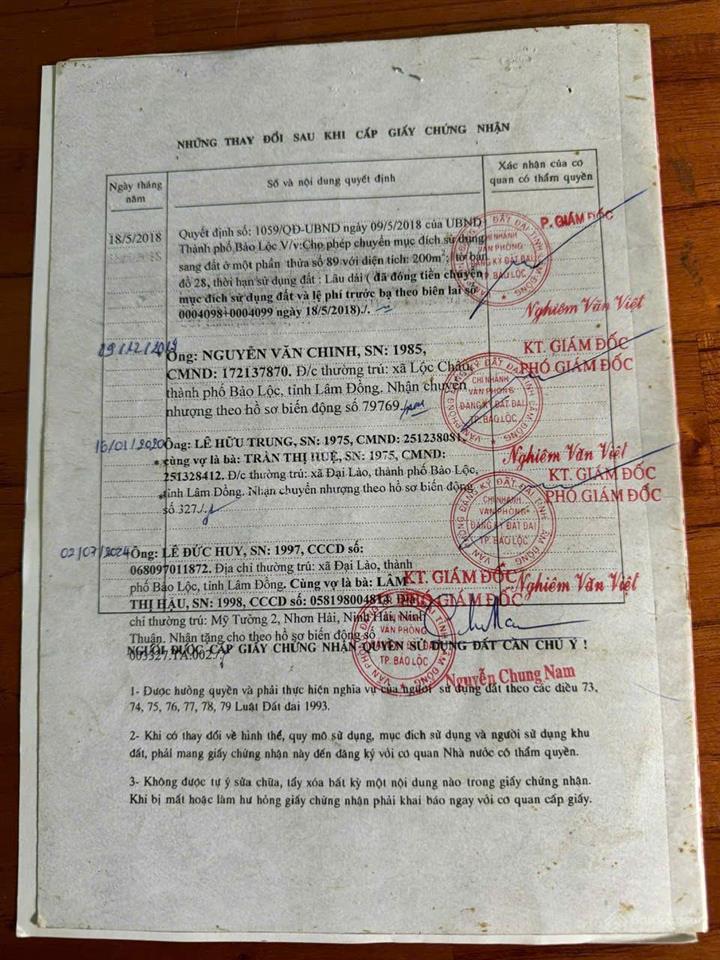 NHỮNG THAY ĐỔI SAU KHI CẤP GIẤY CHỨNG NHẬN
Ngày tháng năm
Số và nội dung quyết định
Xác nhận của cơ quan có thẩm quyền
18/5/2018
Quyết định số: 1059/QĐ-UBND ngày 09/5/2018 của UBND
Thành phố Bảo Lộc V/v:Cho phép chuyển mục đích sử dụng
sang đất ở một phần thửa số 89 với diện tích: 200m²; tờ bản
đồ 28, thời hạn sử dụng đất : Lâu dài ( đã đóng tiền chuyển
mục đích sử dụng đất và lệ phí trước bạ theo biên lai số
0004098+0004099 ngày 18/5/2018)./.
P. GIÁM ĐỐC
CHI NHÁNH
VĂN PHÒNG
ĐĂNG KÝ ĐẤT ĐAI
TP. BẢO LỘC
Nghiêm Văn Việt
09/12/2019
Ông: NGUYỄN VĂN CHINH, SN: 1985,
CMND: 172137870. Đ/c thường trú: xã Lộc Châu,
thành phố Bảo Lộc, tỉnh Lâm Đồng. Nhận chuyển
nhượng theo hồ sơ biến động số 79769
KT. GIÁM ĐỐC
PHÓ GIÁM ĐỐC
CHI NHÁNH
VĂN PHÒNG
ĐĂNG KÝ ĐẤT ĐAI
TP. BẢO LỘC
Nghiêm Văn Việt
16/01/2020
Ông: LÊ HỮU TRUNG, SN: 1975, CMND: 251238081
cùng vợ là bà: TRẦN THỊ HUỆ, SN: 1975, CMND:
251328412. Đ/c thường trú: xã Đại Lào, thành phố Bảo Lộc,
tỉnh Lâm Đồng. Nhận chuyển nhượng theo hồ sơ biến động
số 327./.
KT. GIÁM ĐỐC
PHÓ GIÁM ĐỐC
CHI NHÁNH
VĂN PHÒNG
ĐĂNG KÝ ĐẤT ĐAI
TP. BẢO LỘC
Nghiêm Văn Việt
02/07/2024
Ông: LÊ ĐỨC HUY, SN: 1997, CCCD số:
068097011872. Địa chỉ thường trú: xã Đại Lào, thành
phố Bảo Lộc, tỉnh Lâm Đồng. Cùng vợ là bà: LÂM
THỊ HẬU, SN: 1998, CCCD số: 058198004814. Địa
chỉ thường trú: Mỹ Tường 2, Nhơn Hải, Ninh Hải, Ninh
Thuận. Nhận tặng cho theo hồ sơ biến động số
003327.TA.002./.
KT. GIÁM ĐỐC
PHÓ GIÁM ĐỐC
VĂN PHÒNG
TP. BẢO LỘC
Nguyễn Chung Nam
NGƯỜI ĐƯỢC CẤP GIẤY CHỨNG NHẬN QUYỀN SỬ DỤNG ĐẤT CẦN CHÚ Ý !
1- Được hưởng quyền và phải thực hiện nghĩa vụ của người sử dụng đất theo các điều 73,
74, 75, 76, 77, 78, 79 Luật Đất đai 1993.
2- Khi có thay đổi về hình thể, quy mô sử dụng, mục đích sử dụng và người sử dụng khu
đất, phải mang giấy chứng nhận này đến đăng ký với cơ quan Nhà nước có thẩm quyền.
3- Không được tự ý sửa chữa, tẩy xóa bất kỳ một nội dung nào trong giấy chứng nhận.
Khi bị mất hoặc làm hư hỏng giấy chứng nhận phải khai báo ngay với cơ quan cấp giấy.